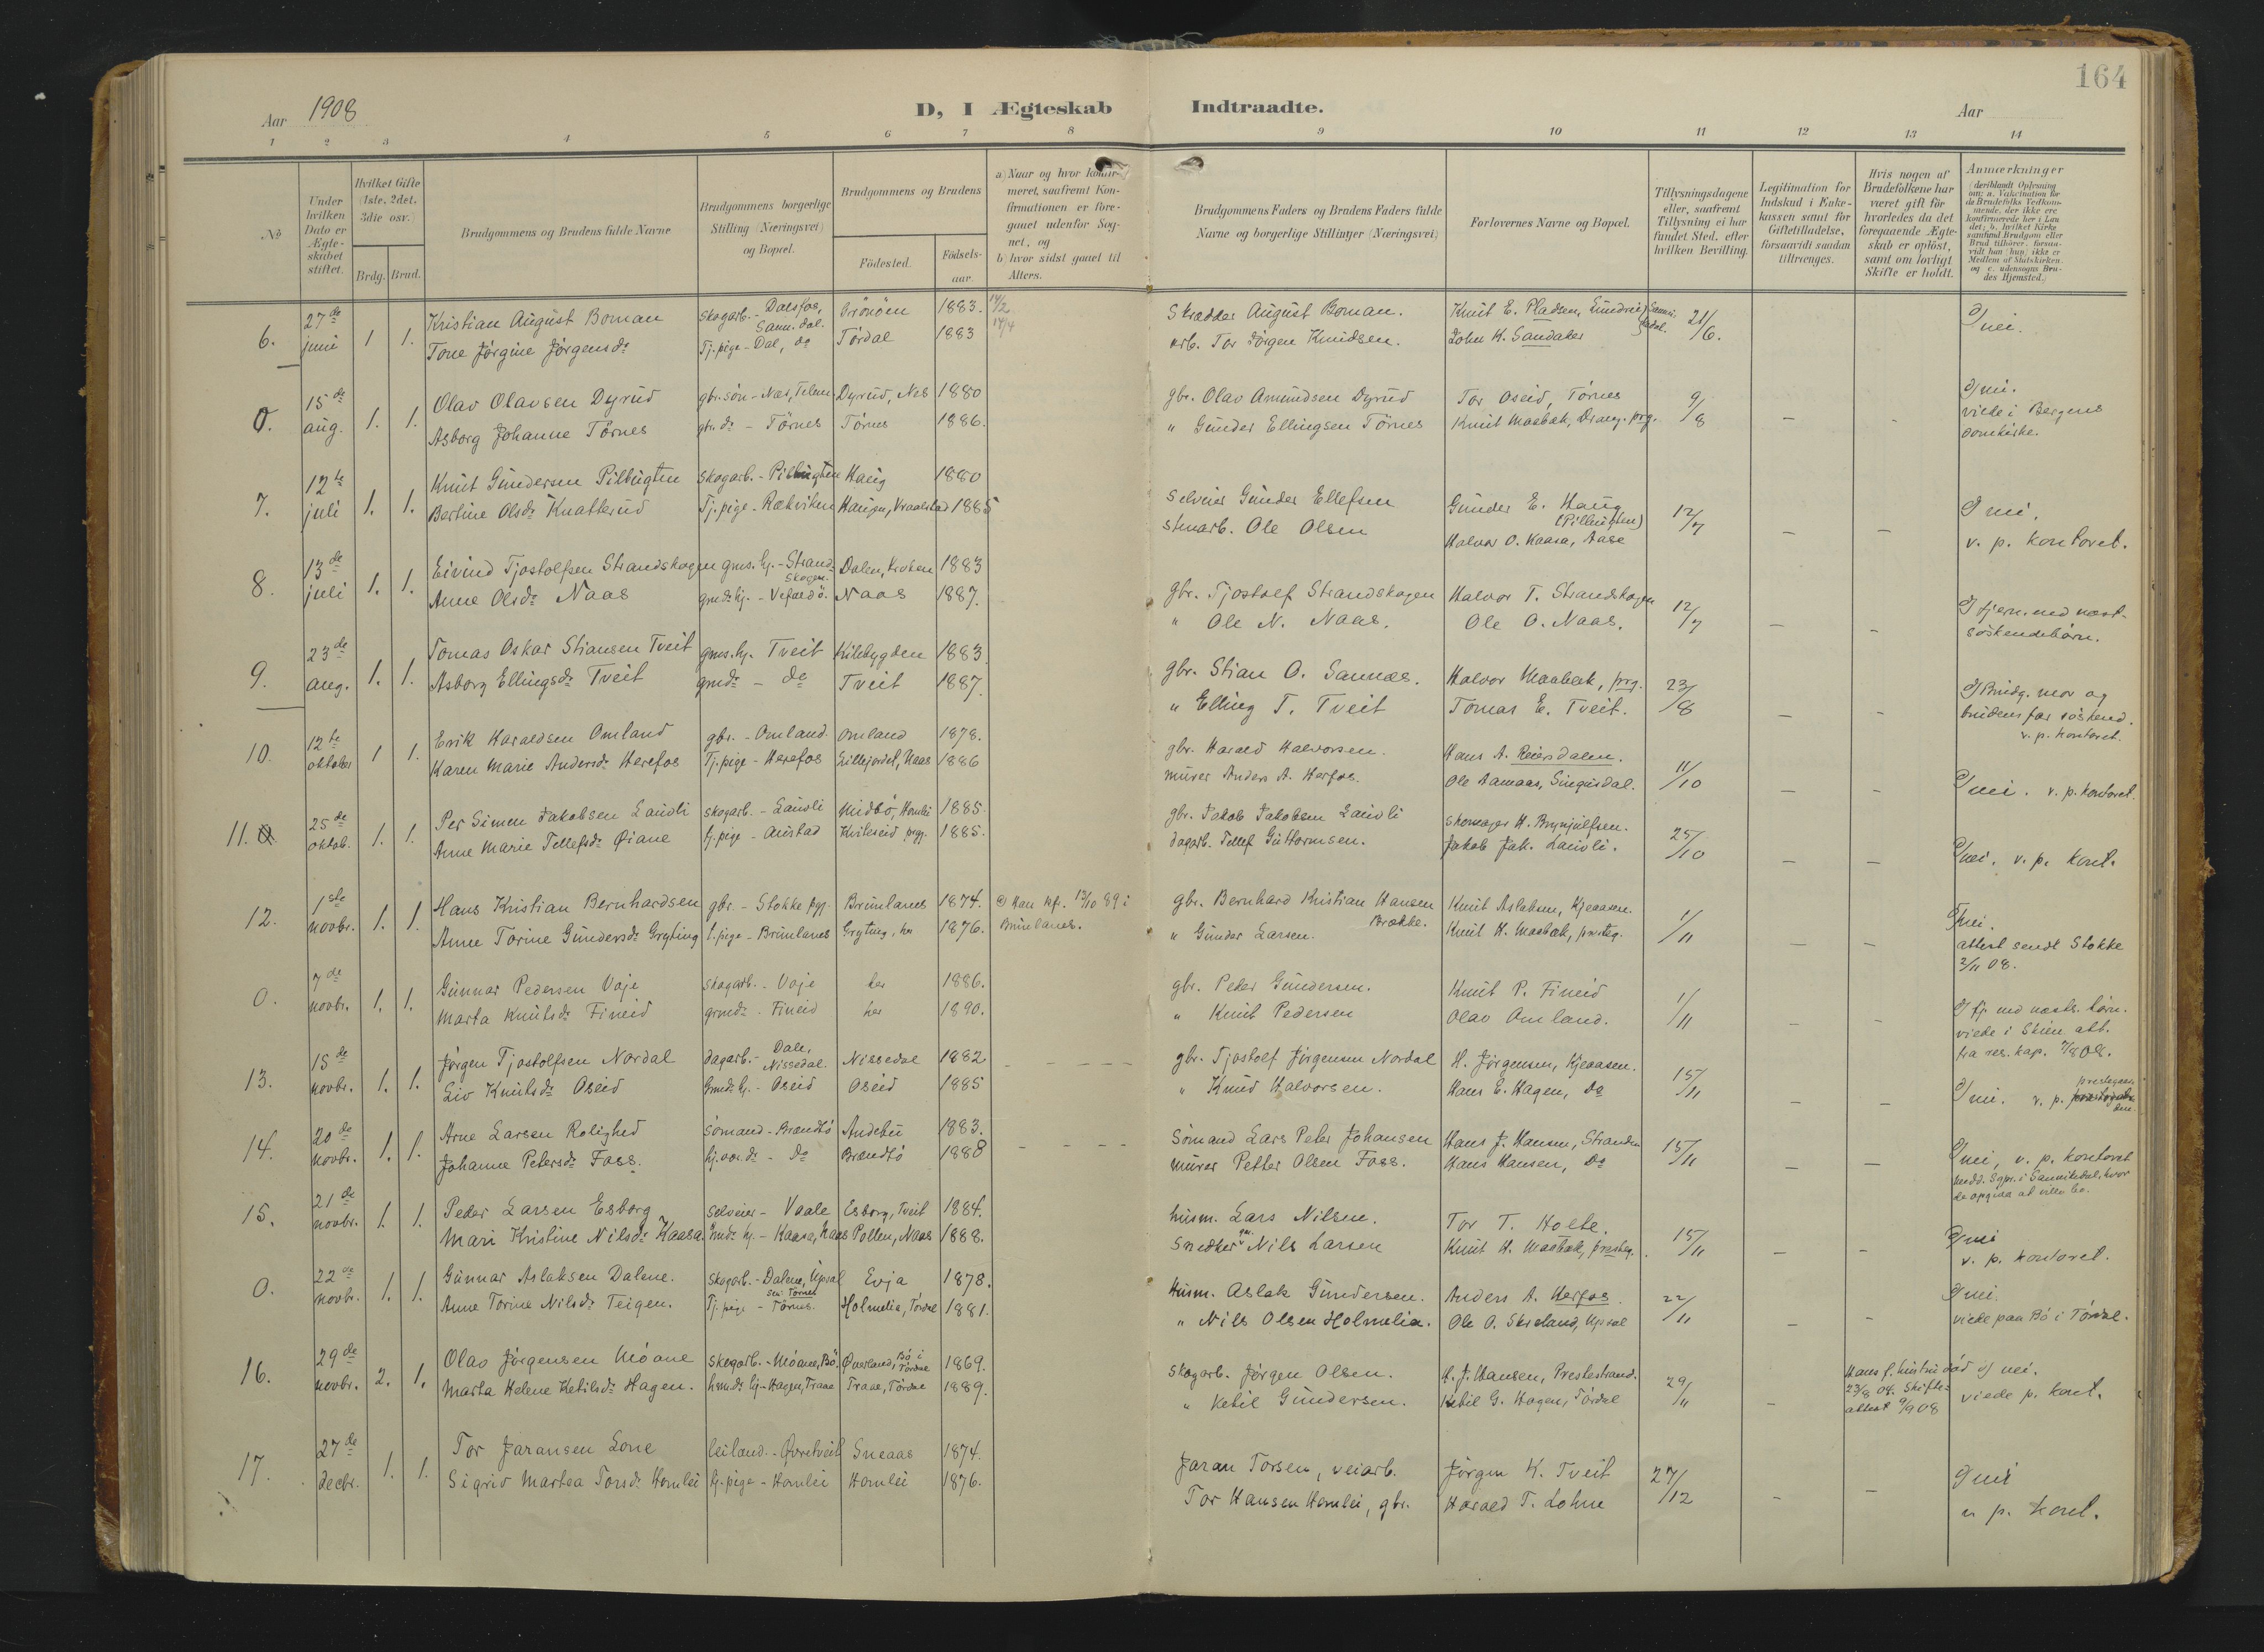 164
Aar 1908
D, I Ægteskab Indtraadte.
Aar
1 2 3 4 5 6 7 8 9 10 11 12 13 14
No
Under hvilken Dato er Ægteskabet stiftet.
Hvilket Gifte (1ste, 2det, 3die osv.)
Brdg. Brud.
Brudgommens og Brudens fulde Navne
Brudgommens borgerlige Stilling (Næringsvei) og Bopæl.
Brudgommens og Brudens
Fødested.
Fødselsaar.
a) Naar og hvor konfirmeret, saafremt Konfirmationen er foregaaet udenfor Sognet, og
b) hvor sidst gaaet til Alters.
Brudgommens Faders og Brudens Faders fulde Navne og borgerlige Stillinger (Næringsvei)
Forlovernes Navne og Bopæl.
Tillysningsdagene eller, saafremt Tillysning ei har fundet Sted, efter hvilken Bevilling.
Legitimation for Indskud i Enkekassen samt for Giftetilladelse, forsaavidt saadan tiltrænges.
Hvis nogen af Brudefolkene har været gift før hvorledes da det foregaaende Ægteskab er opløst, samt om lovligt Skifte er holdt.
Anmærkninger
6. 27de juni 1 1. Kristian August Boman skogarb. - Dalsfos, Sann. dal. Brönöen 1883. 14/2 Skrædder August Boman. Knut E. Pladsen, 21/6. nei.
Tone Jørgine Jørgensdr Tj. pige - Dal, do Tördal 1883 14/4 arb. Tor Jörgen Knudsen. John K. Sandaker
0. 15de aug. 1. 1. Olav Olavsen Dyrud gbr. sön - Næs, Telem. Dyrud, Nes 1880 gbr. Olav Amundsen Dyrud Tor Aseid, Törnes 9/8 - - nei.
Asborg Johanne Törnes gbr. dr - Törnes Törnes 1886. " Gunder Ellingsen Törnes Knut Maabæk, Drang. prg. viede i Bergens domkirke.
7. 12te juli 1. 1. Knut Gundersen Pilbugten skogarb. - Pilbugten Haug 1880 selveier Gunder Ellefsen Gunder E. Haug (Pilbugten) 12/7 - - nei.
Bertine Olsdr Knatterud Tj. pige - Rækviken Haugen, Kraakstad 1885 stenarb. Ole Olsen Halvor O. Kaasa, Aase v. p. kontoret.
8. 13de juli 1. 1. Eivind Tjostolfsen Strandskogen gms. hj. - Strandskogen Dalen, Kroken 1883 gbr. Tjostolf Strandskogen Halvor T. Strandskogen 12/7 - - fjern. end næst-
Anne Olsdr Naas gmdr hj. - Vefaldö. Naas 1887. " Ole N. Naas. Ole O. Naas. söskendebörn.
9. 23de aug. 1. 1. Tomas Oskar Stiansen Tveit gms. hj. Tveit Kilebygden 1883. gbr. Stian O. Sannæs. Halvor Maabæk, prg. 23/8 - - Brudg. mor og
Asborg Ellingsdr Tveit gmdr - do Tveit 1887. " Elling T. Tveit Tomas E. Tveit. brudens far söskend. v. p. kontoret.
10. 12te oktober 1 1. Erik Haraldsen Omland gbr. - Omland. Omland 1878. gbr. Harald Halvorsen. Hans A. Reiersdalen. 11/10 - - nei. v. p. kontoret.
Karen Marie Andersdr Herefos Tj. pige - Herefos Lillejordet, Naas 1886 murer Anders A. Herfos. Ole Aamaas, Singusdal.
11. 25de oktob. 1. 1. Per Simen Jakobsen Laudli skogarb. - Laudli Midbö, Homlei 1885. gbr. Jakob Jakobsen Laudli skomager H. Brynjulfsen. 25/10 - - nei. v. p. kont.
Anne Marie Tellefsdr Øiane tj. pige - Austad Kviteseid prgj. 1885. dagarb. Tellef Guttormsen. Jakob Jak. Laudli.
12. 1ste novbr. 1. 1. Hans Kristian Bernhardsen gbr. - Stokke pgj. Brunlanes 1874. a) Han kf. 13/10 89 i Brunlanes. gbr. Bernhard Kristian Hansen Brække. Knut Aslaksen, Kjeaasen. 1/11 - - nei.
Anne Torine Gundersdr Gryting t. pige - Brunlanes Gryting, her 1876. " Gunder Larsen. Knut H. Maabæk, presteg. attest sendt Stokke 2/11 08.
0. 7de novbr. 1. 1. Gunnar Pedersen Voje skogarb. - Voje her 1886. gbr. Peder Gundersen. Knut P. Fineid 1/11 - - fj. end næsts. börn.
Marta Knutsdr Fineid gmdr - Fineid her 1890. " Knut Pedersen Olav Omland. viede i Skien att. fra res. kap. 7/8 08.
13. 15de novbr. 1. 1. Jørgen Tjostolfsen Nordal dagarb. - Dale, Nissedal. Nissedal 1882 - - - - gbr. Tjostolf Jörgensen Nordal H. Jörgensen, Kjeaasen. 15/11 - - nei. v. p.
Liv Knutsdr Aseid Gmdr hj. - Aseid Aseid 1885 " Knud Halvorsen. Hans E. Hagen, do
14. 20de novbr. 1. 1. Arne Larsen Rolighed sömand - Brændtö Andebu 1883. - - - - Sömand Lars Peter Johansen Hans J. Hansen, Stranden 15/11 - - nei, v. p. kontoret
Johanne Petersdr Foss. hj. vær. dr - do Brændtö 1888 murer Petter Olsen Foss. Hans Hansen, do medd. sgpr. i Sannikedal, hvor de opgiva at ville bo.
15. 21de novbr. 1. 1. Peder Larsen Esborg selveier - Vaale Esborg, Tveit 1884. husm. Lars Nilsen. Tor T. Holte. 15/11 - - nei
Mari Kristine Nilsdr Kaasa Gmdr hj. - Kaasa, Naas Pollen, Naas 1888. Snedker Nils Larsen Knut H. Maabæk, presteg. v. p. kontoret.
0. 22de novbr. 1. 1. Gunnar Aslaksen Dalene. Skogarb. - Dalene, Upsal Evja 1878. Husm. Aslak Gundersen. Anders A. Herfos. 22/11 - - nei.
Anne Torine Nilsdr Teigen. Tj. pige - Törnes. Holmelia, Tördal 1881. " Nils Olsen Holmelia. Ole O. Skreland, Upsal viede paa Bö i Tördal.
16. 29de novbr. 2. 1. Olav Jørgensen Möane skogarb. - Möane, Bö. Øverland, Bö i Tördal 1869. Skogarb. Jørgen Olsen. H. J. Hansen, Prestestrand. 29/11 - Hans f. hustru död 23/8 04. Skifteattest 9/9 08 nei.
Marta Helene Ketilsdr Hagen. hsmdr hj - Hagen, Traae Traae, Tördal 1889. " Ketil Gundersen. Ketil G. Hagen, Tördal viede p. kont.
17. 27de decbr. 1. 1. Tor Jaransen Lone leiland. - Øvretveit Sneaas 1874. Jaran Torsen, veiarb. Jörgen K. Tveit 27/12 - - nei
Sigrid Martea Torsdr Homlei tj. pige - Homlei Homlei 1876. Tor Hansen Homlei, gbr. Harald T. Lohne v. p. kont.